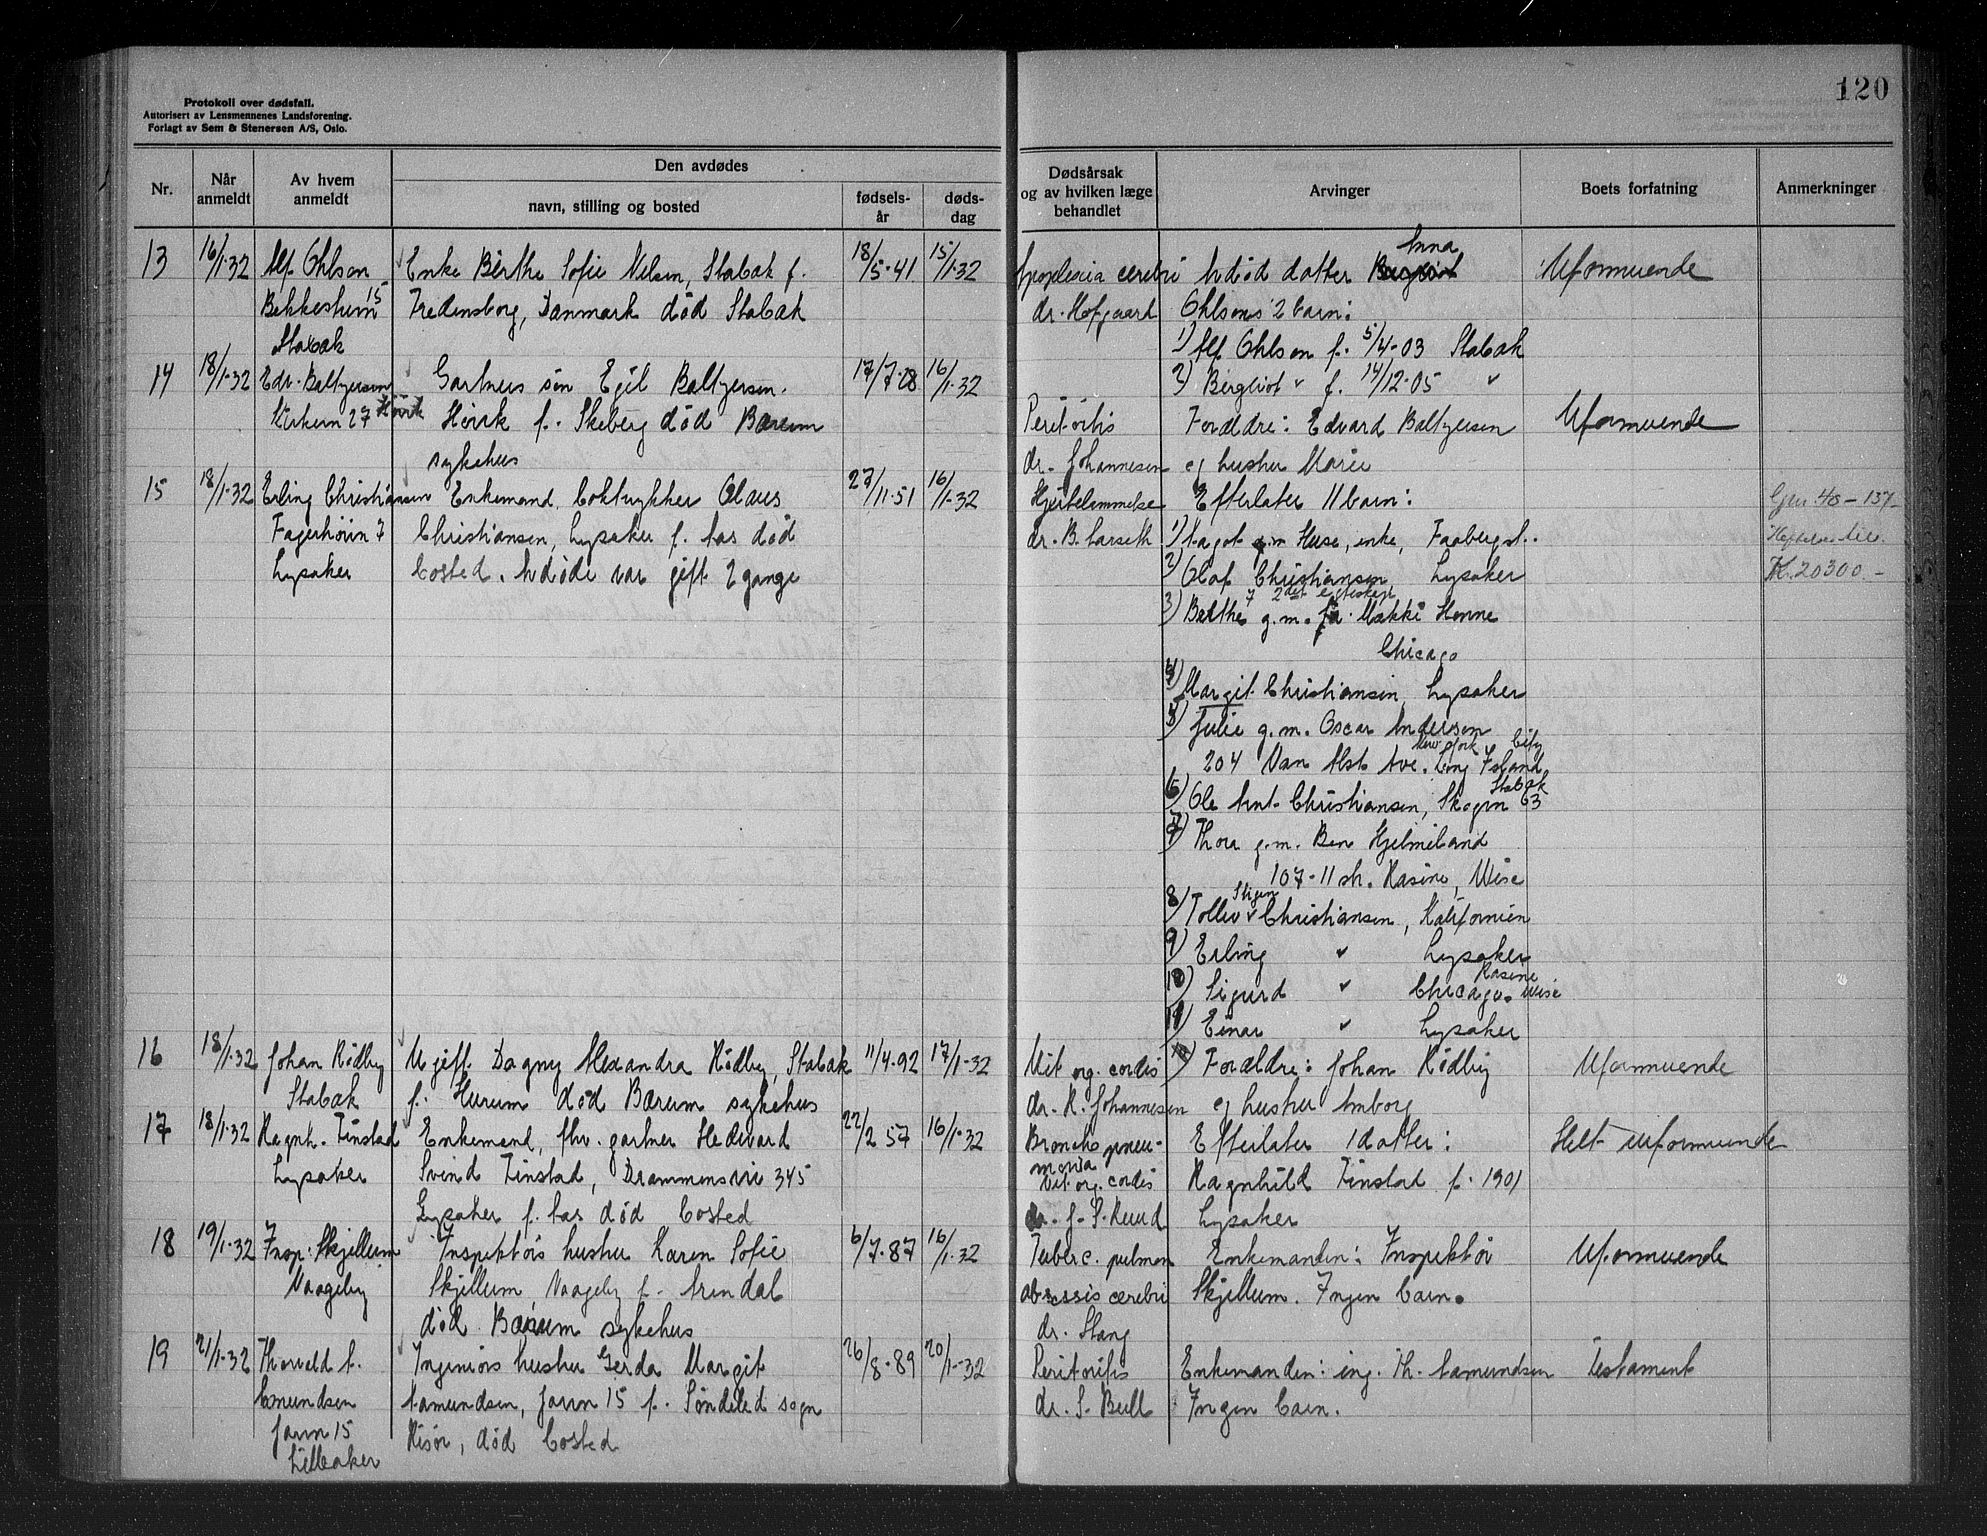 120
Protokoll over dødsfall.
Autorisert av Lensmennenes Landsforening.
Forlagt av Sem & Stenersen A/S, Oslo.
Nr.
Når anmeldt
Av hvem anmeldt
Den avdødes
navn, stilling og bosted
fødsels-år
døds-dag
Dødsårsak og av hvilken læge behandlet
Arvinger
Boets forfatning
Anmerkninger
13 16/1-32 Alf Ohlson Enke Berthe Sofie Nelsen, Stabæk f. 18/5-41 15/1-32 Apoplexia cerebri Avdød datter Anna Uformuende
Bekkestuen 15 Fredensborg, Danmark død Stabæk dr. Hofgaard Ohlsons 2 barn:
Stabæk 1) Alf Ohlson f. 5/4-03 Stabæk
14 18/1-32 Edv. Baltzersen Gartners søn Egil Baltzersen. 17/7-28 16/1-32 2) Bergliot " f. 14/12-05 "
Kirkevn 27 Høvik Høvik f. Skeberg død Bærum Peritonitis Forældre: Edvard Baltzersen Uformuende
sykehus dr. Johannesen og hustru Marie
15 18/1-32 Erling Christiansen Enkemand boktrykker Olaus 27/11-51 16/1-32 Hjertelammelse Efterlater 11 barn:
Fagerhøivn 7 Christiansen, Lysaker f. Aas død dr. B. Larseth 1) Aagot g.m. Huse, enke, Faabergst.
Lysaker bosted. Avdøde var gift 2 gange 2) Olaf Christiansen Lysaker Kr. 20300.-
7 2det egteskap
3) Berthe g.m. Mækki Honne
Chicago
4) Margit Christiansen, Lysaker
5) Julie g.m. Oscar Anderson
New York City
204 Van Alst Ave. Long Island
6) Ole Ant. Christiansen, Skogvn 63 Stabæk
7) Thora g.m. Ben Hjelmeland
107-11 str. Rasine, Wise
8) Tollev Stigen Christiansen, Kalifornien
9) Erling " Lysaker
10) Sigurd " Chicago. Rasine Wise
11) Einar " Lysaker
16 18/1-32 Johan Rødby Ugift Dagny Alexandra Rødby, Stabæk 11/4-92 17/1-32 Vit. org. cordis Forældre: Johan Rødby Uformuende
Stabæk f. Hurum død Bærum sykehus dr. K. Johannesen og hustru Amborg
17 18/1-32 Ragnh. Finstad Enkemand, fhv. gartner Hedevard 22/2 57 16/1-32 Broncho pneu- Efterlater 1 datter: Helt uformuende
Lysaker Svend Finstad, Drammensvn 345 monia Vit. org. cordis Ragnhild Finstad f. 1901
Lysaker f. Aas død bosted dr. J. S. Ruud Lysaker
18 19/1-32 Insp. Skjellum Inspektørs hustru Karen Sofie 6/7-87 16/1-32 Tuberc. pulmon Enkemanden: Inspektør Uformuende
Vaageby Skjellum, Vaageby f. Arendal abscssis cerebri Skjellum. Ingen barn.
død Bærum sykehus dr. Stang
19 21/1-32 Thorvald A. Ingeniørs hustru Gerda Margit 26/8-89 20/1-32 Peritonitis Enkemanden: ing. Th. Aamundsen Testament
Amundsen Aamundsen, Jarvn 15 f. Søndeled sogn dr. S. Bull Ingen barn.
Jarvn 15 Risør, død bosted
Lilleaker